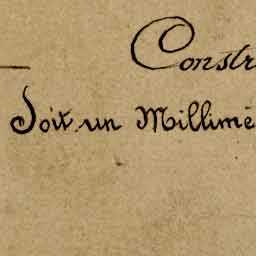 Constr
Soit un Millimè